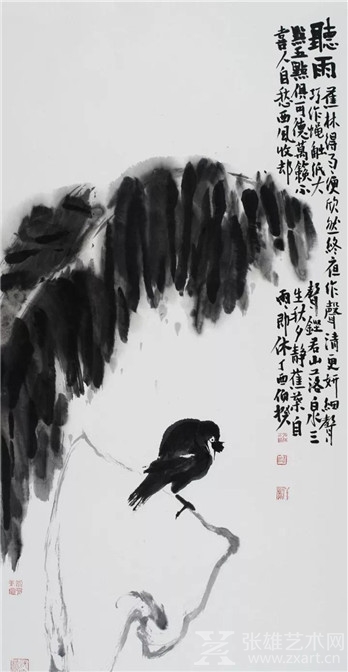 聽雨
蕉林得雨便欣然終夜作聲清更妍細聲
巧作蝇触纸大聲鏗若山落泉三
點五點俱可聽萬籟不生秋夕静蕉葉自
喜人自愁西風收却雨即休丁酉伯揆
张雄艺术网
www.zxart.cn